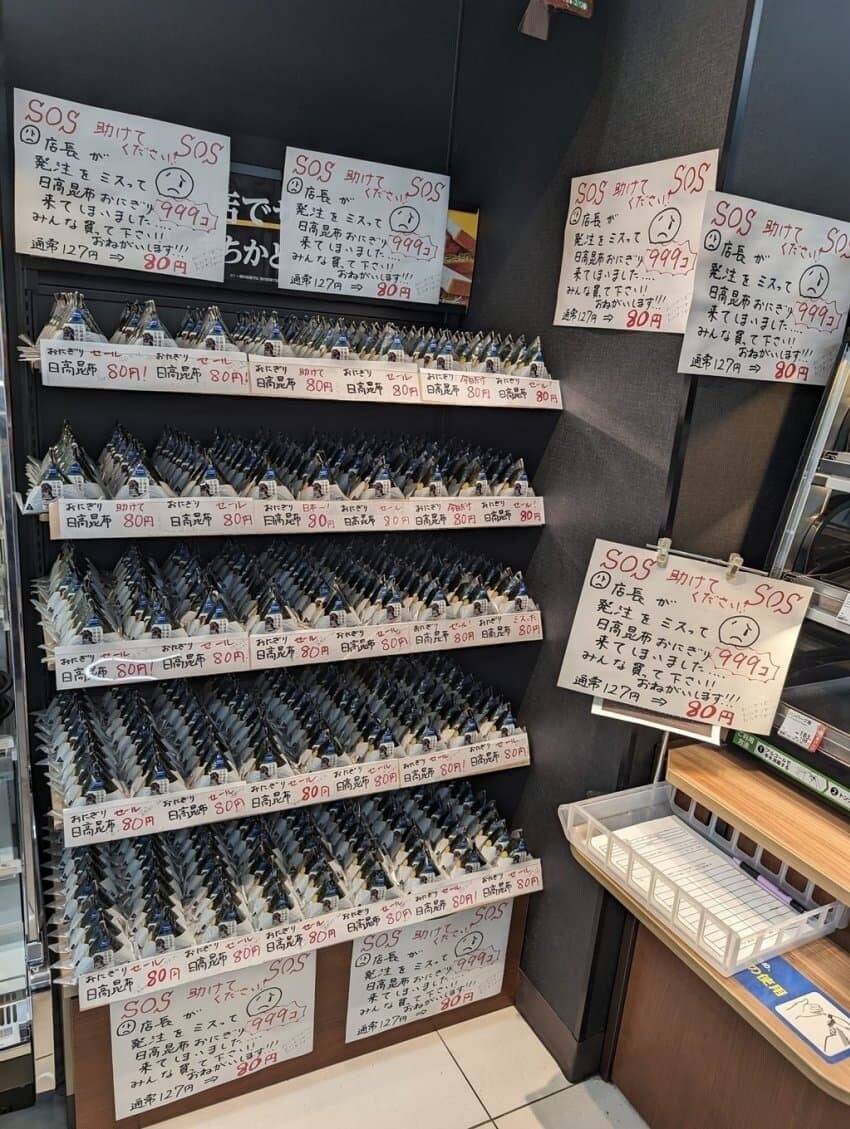 SOS 助けてください! SOS
店長が
発注をミスって
日高昆布おにぎり 999コ
来てしまいました…
みんな買って下さい!!
おねがいします!!!
通常127円 ⇒ 80円
SOS 助けてください! SOS
店長が
発注をミスって
日高昆布おにぎり 999コ
来てしまいました…
みんな買って下さい!!
おねがいします!!!
通常127円 ⇒ 80円
SOS 助けてください! SOS
店長が
発注をミスって
日高昆布おにぎり 999コ
来てしまいました…
みんな買って下さい!!
おねがいします!!!
通常127円 ⇒ 80円
SOS 助けてください! SOS
店長が
発注をミスって
日高昆布おにぎり 999コ
来てしまいました…
みんな買って下さい!!
おねがいします!!!
通常127円 ⇒ 80円
おにぎり セール
日高昆布 80円!
おにぎり セール
日高昆布 80円!
おにぎり 助けて
日高昆布 80円
おにぎり セール
日高昆布 80円
おにぎり 今日だけ
日高昆布 80円
おにぎり セール
日高昆布 80円
おにぎり 助けて
日高昆布 80円
おにぎり セール
日高昆布 80円
おにぎり 日本一!
日高昆布 80円
おにぎり セール
日高昆布 80円
おにぎり 今日だけ
日高昆布 80円
おにぎり セール
日高昆布 80円
おにぎり セール
日高昆布 80円!
おにぎり セール
日高昆布 80円
おにぎり セール
日高昆布 80円
おにぎり セール
日高昆布 80円
おにぎり セール
日高昆布 80円
おにぎり ミスった
日高昆布 80円
おにぎり セール
日高昆布 80円
おにぎり セール
日高昆布 80円
おにぎり セール
日高昆布 80円
おにぎり セール
日高昆布 80円
おにぎり セール
日高昆布 80円!
おにぎり セール
日高昆布 80円
おにぎり セール
日高昆布 80円
おにぎり セール
日高昆布 80円
おにぎり セール
日高昆布 80円
おにぎり セール
日高昆布 80円
おにぎり セール
日高昆布 80円
おにぎり セール
日高昆布 80円
SOS 助けてください! SOS
店長が
発注をミスって
日高昆布おにぎり 999コ
来てしまいました…
みんな買って下さい!!
おねがいします!!!
通常127円 ⇒ 80円
SOS 助けてください! SOS
店長が
発注をミスって
日高昆布おにぎり 999コ
来てしまいました…
みんな買って下さい!!
おねがいします!!!
通常127円 ⇒ 80円
SOS 助けてください! SOS
店長が
発注をミスって
日高昆布おにぎり 999コ
来てしまいました…
みんな買って下さい!!
おねがいします!!!
通常127円 ⇒ 80円
の使用